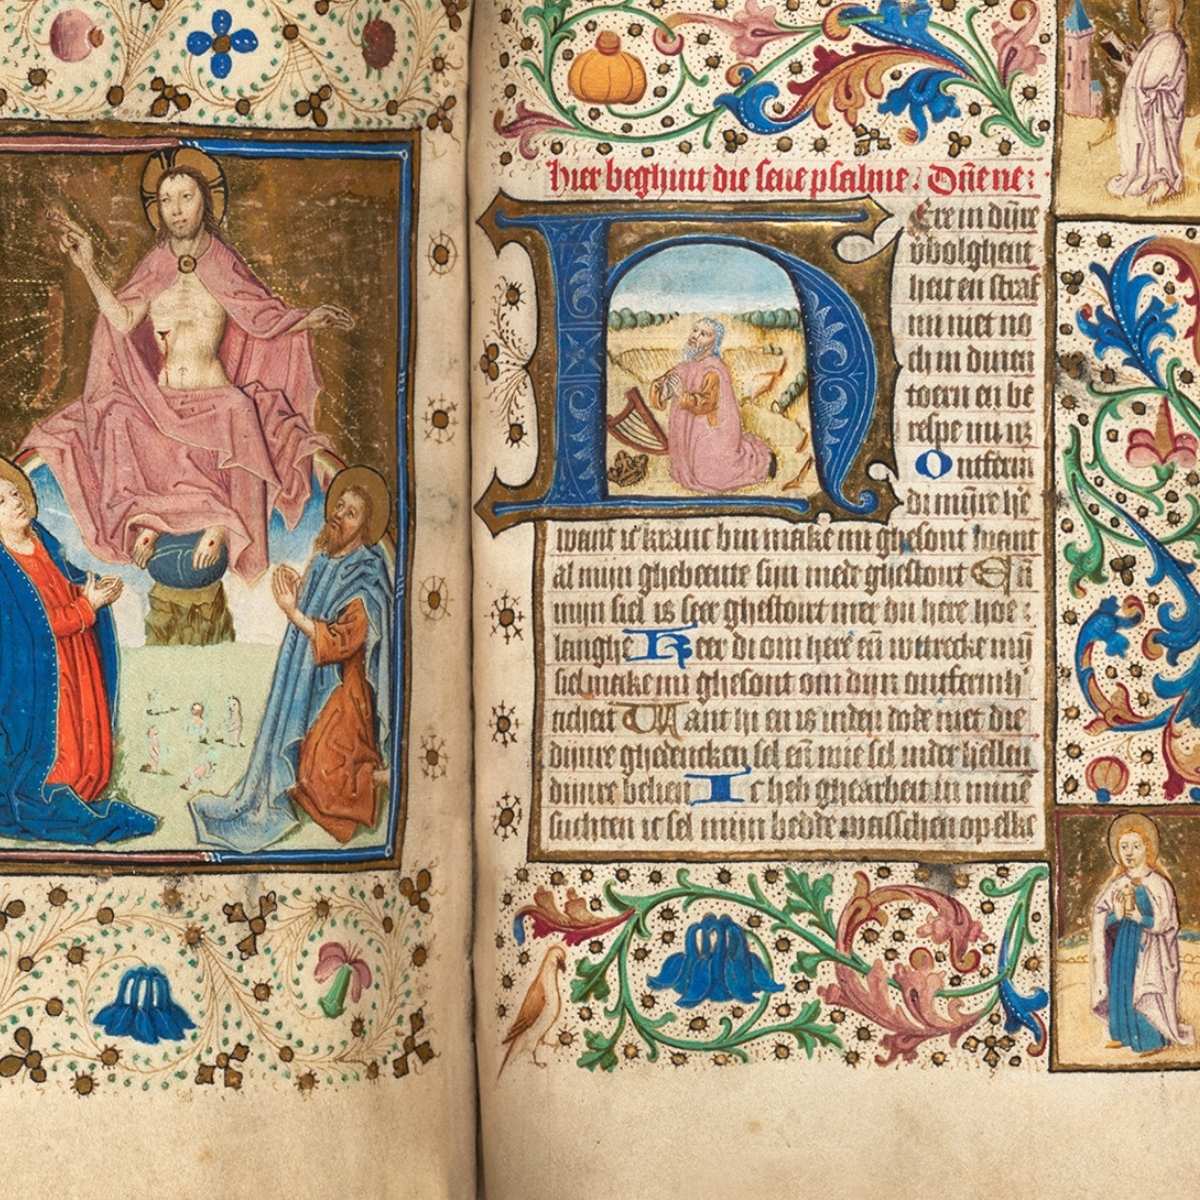 hier beghint die seve psalme. Dn̄e ne:
HEre in dijnre
v̄bolghent
heit en straf
mi niet no
ch in dinen
toern en be
respe mi nz
Ontferm
di mijnre hē
want ic kranc bin make mi ghesont want
al mijn ghebeente sijn mede ghestoirt Eñ
mijn siel is seer ghestoirt mer du here hoe:
langhe Keer di om here eñ wttrecke mij
siel make mi ghesont om dijn ontfermh'
ticheit Want hi en is inden dode niet die
dijnre ghedencken sel eñ wie sel inder hellen
dijnre belien Ic heb ghearbeit in mine
suchten ic sel mijn bedde wasschen op elke